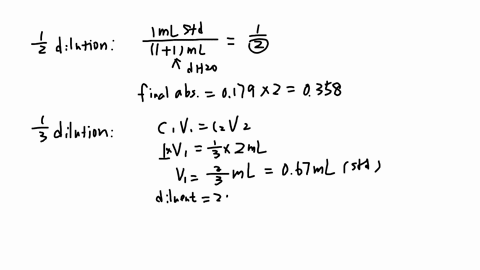 1/2 dilution: 1 mL std / (1+1) mL = 1/2
↑ dH2O
final abs. = 0.179 × 2 = 0.358
1/3 dilution: C1V1 = C2V2
1×V1 = 1/3 × 2 mL
V1 = 2/3 mL = 0.67 mL (std)
diluent = 2.